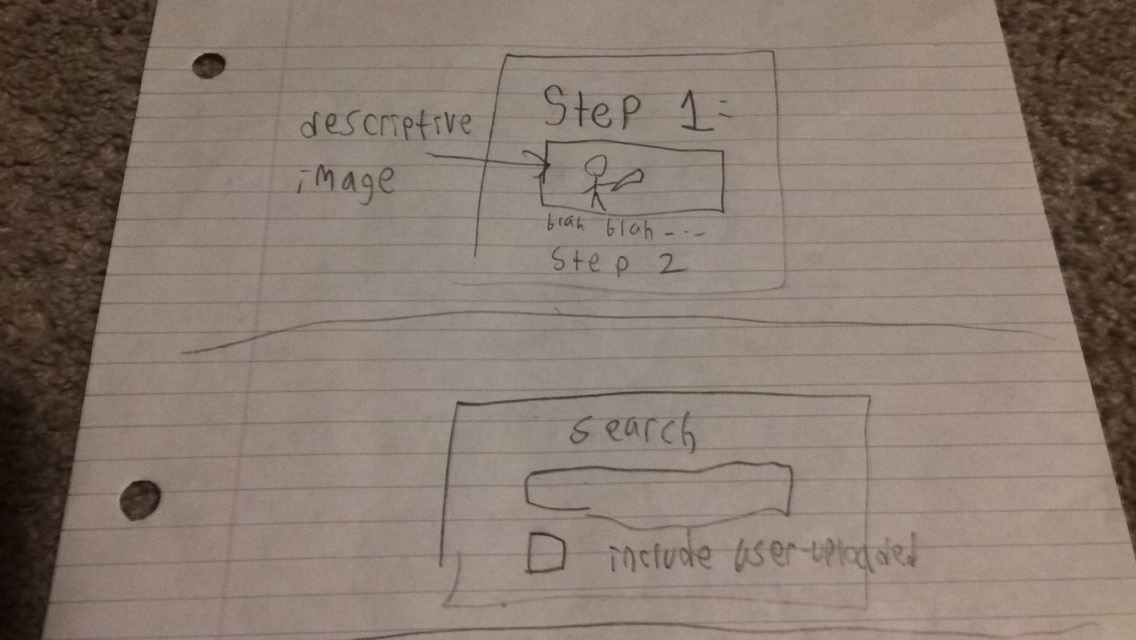 descriptive
image
Step 1:
blah blah ---
Step 2
search
include user-uploaded